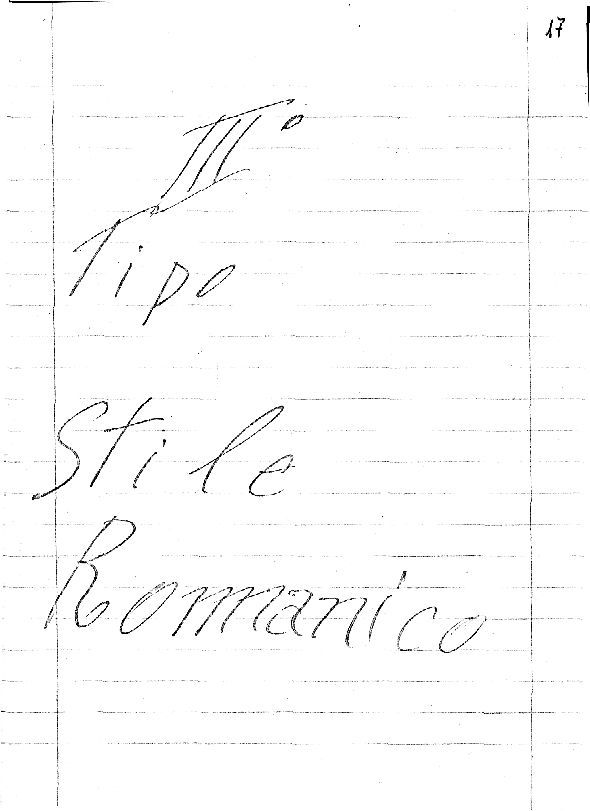 17
III°
Tipo
Stile
Romanico